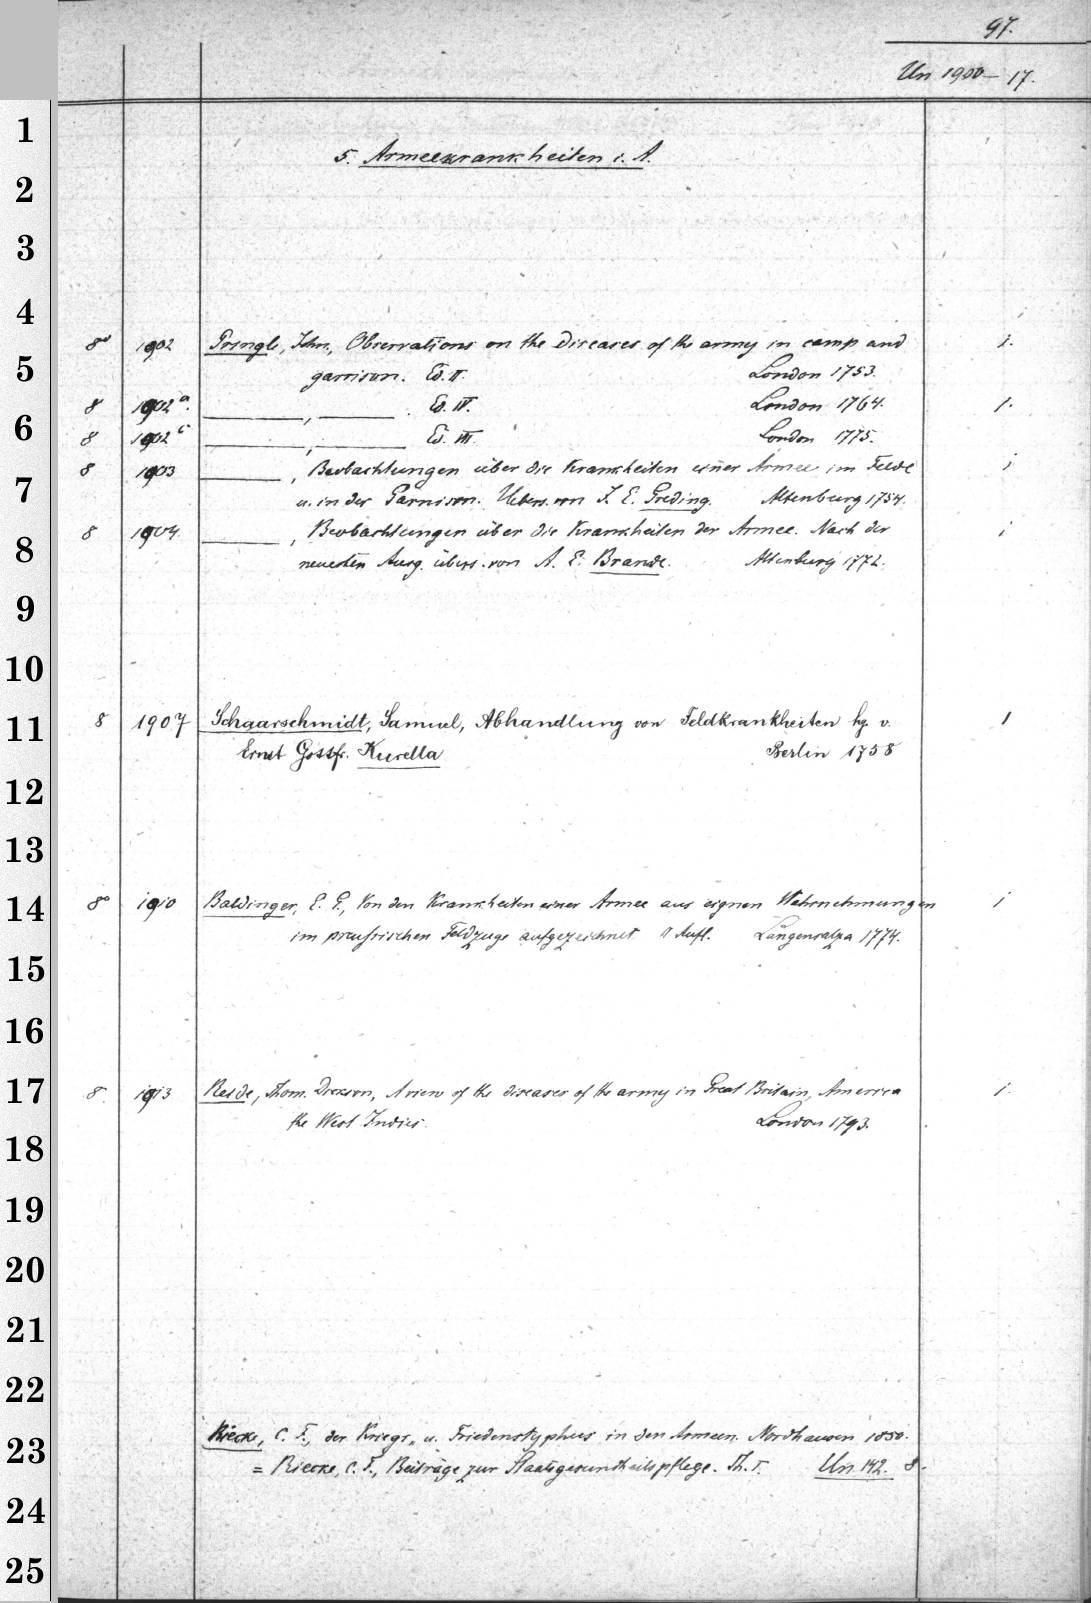 97.
Un 1900 – 17.
1
5. Armeekrankheiten i. A.
2
3
4
8° 1902 Pringle, John, Observations on the diseases of the army in camp and 1.
5 garrison. Ed. II. London 1753.
8 1902 a. ———, ——— . Ed. IV. London 1764. 1.
6
8 1902 c ———, ——— Ed. III. London 1775.
8 1903 ———, Beobachtungen über die Krankheiten einer Armee im Felde 1
7 u. in der Garnison. Uebers. von J. E. Greding. Altenburg 1754.
8 1904. ———, Beobachtungen über die Krankheiten der Armee. Nach der 1
8 neuesten Ausg. übers. von A. E. Brande. Altenburg 1772.
9
10
11 8 1907 Schaarschmidt, Samuel, Abhandlung von Feldkrankheiten hg. v. 1
Ernst Gottfr. Kurella Berlin 1758
12
13
14 8° 1910 Baldinger, E. G., Von den Krankheiten einer Armee aus eignen Wahrnehmungen 1
im preußischen Feldzuge aufgezeichnet II Aufl. Langensalza 1774.
15
16
17 8. 1913 Reide, Thom. Dickson, A view of the diseases of the army in Great Britain, America 1.
the West Indies. London 1793.
18
19
20
21
22
Riecke, C. F., der Kriegs- u. Friedenstyphus in den Armeen. Nordhausen 1850.
23
= Riecke, C. F., Beiträge zur Staatsgesundheitspflege. Th. I. Un 142. 8.
24
25